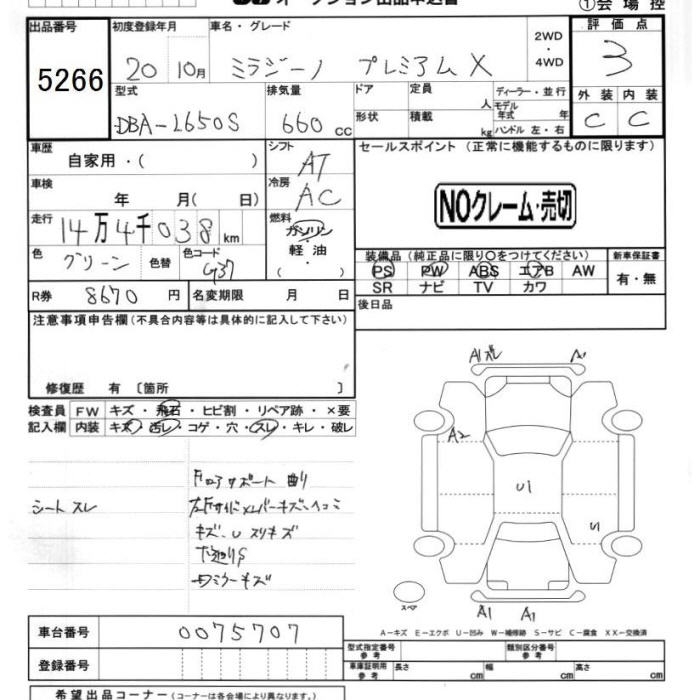 オークション出品申込書
①会場控
出品番号 初度登録年月 車名・グレード 2WD・4WD 評価点
5266 20 10月 ミラジーノ プレミアムX 3
型式 排気量 ドア 定員 人 ディーラー・並行 外装 内装
DBA-L650S 660 cc 形状 積載 kg モデル年式 年 ハンドル 左・右 C C
車歴 シフト セールスポイント (正常に機能するものに限ります)
自家用・( ) AT
車検 冷房
年 月( 日) AC NOクレーム・売切
走行 燃料
14万4千038km ガソリン
軽・油
( ・ )
色 色替 色コード 装備品 (純正品に限り○をつけてください) 新車保証書
グリーン G37 PS PW ABS エアB AW 有・無
SR ナビ TV カワ
R券 8670 円 名変期限 月 日 後日品
注意事項申告欄 (不具合内容等は具体的に記入して下さい)
修復歴 有 〔箇所 〕
検査員 FW キズ・飛石・ヒビ割・リペア跡・×要
記入欄 内装 キズ・汚レ・コゲ・穴・スレ・キレ・破レ
A1 A1
A2
U1
Fコアサポート 曲リ
シート スレ
キズ・U スリキズ
下廻りS
スペア
A1 A1
A－キズ E－エクボ U－凹み W－補修跡 S－サビ C－腐食 XX－交換済
車台番号 0075707
型式指定番号 参考 類別区分番号 参考
登録番号
車庫証明用 参考 長さ cm 幅 cm 高さ cm
希望出品コーナー (コーナーは各会場により異なります。)